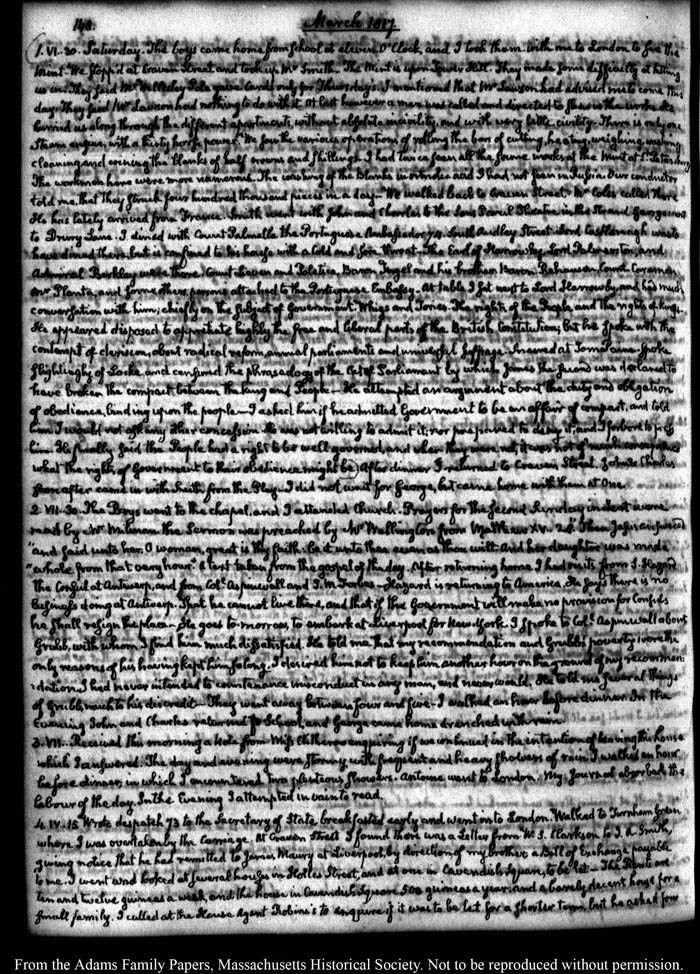 148.
March 1817.
1. VI..30. Saturday. The boys came home from School at eleven O'Clock, and I took them with me to London to see the
Mint. We stopp'd at Craven Street and took up Mr Smith. The Mint is upon Tower Hill. They made some difficulty at letting
us in. They said Mr Wellesley Pole gave Cards only for Thursdays. I mentioned that Mr Lawson had advised me to come this
day. They said Mr Lawson had nothing to do with it. At last however a man was called and directed to shew us the works. He
hurried us along through the different apartments, without absolute incivility, and with very little civility. There is only one
Steam engine, with a thirty horse power. We saw the various operations of rolling the bars of cutting, heating, weighing, washing
cleaning and coining the blanks of half crowns and shillings. I had twice seen all the same works at the Mint of St. Petersburg
The workmen here were more numerous. The washing of the Blanks in I had not seen in Russia. Our conductor
told me, that they struck four hundred thousand pieces in a day. We walked back to Craven Street. Mr Coles called there
He has lately arrived from France. Smith went with John and Charles to the Sans Pareil Theatre in the Strand George went
to Drury Lane. I dined with Count Palmella the Portuguese Ambassador 74. South Audley Street. Lord Castlereagh was to
have dined there, but is confined to his house with a cold and sore throat. The Earl of Harrowby, Lord Palmerston, and
Admiral Berkley were there. Count Lieven and Politica, Baron and his brother, Baron Rehausen, Count
Mr Planta, and some other persons attached to the Portuguese Embassy. At table I sat next to Lord Harrowby, and had much
conversation with him; chiefly on the subject of Government. Whigs and Tories. The rights of the People and the rights of Kings.
He appeared disposed to appreciate highly the free and liberal parts of the British Constitution; but he spoke with the
contempt of derision, about radical reform, annual parliaments and universal suffrage. Sneered at Tom Paine. Spoke
slightingly of Locke and censured the phraseology of the Act of Parliament by which James the Second was declared to
have broken the compact between the King and People. He attempted an argument about the duty and obligation
of obedience, binding upon the people. I asked him if he admitted Government to be an affair of compact, and told
him I would not ask any other concession. He was not willing to admit it; nor prepared to deny it, and I forbore to press
him. He finally said the People had a right to be well governed, and when they were not, it was not of much consequence
what the rights of Government to their obedience might be. After dinner I returned to Craven Street. John & Charles
soon after came in with Smith from the Play. I did not wait for George, but came home with them at One.
2. VII..30. The Boys went to the chapel, and I attended Church. Prayers for the second Sunday in Lent were
read by Mr Milman. The Sermon was preached by Mr Wallington from Matthew XV. 28. Then Jesus answered
"and said unto her, O woman, great is thy faith: be it unto thee even as thou wilt. And her daughter was made
"whole from that very hour." A text taken from the gospel of the day. After returning home I had visits from S. Hazard
The Consul at Antwerp, and from Coll. Aspinwall and J. M. Forbes. Hazard is returning to America. He says there is no
business doing at Antwerp. That he cannot live there, and that if the Government will make no provision for Consuls
he shall resign the place. He goes to-morrow, to embark at Liverpool for New-York. I spoke to Coll. Aspinwall about
Grubb, with whom I find him much dissatisfied. He told me that my recommendation and Grubb's poverty were the
only reasons of his having kept him so long. I desired him not to keep him another hour on the ground of my recommen-
dation. I had never intended to countenance misconduct in any man, and never would. He told me several things
of Grubb much to his discredit. They went away between four and five. I walked an hour before dinner. In the
Evening John and Charles returned to School, and George came home drenched with rain.
3. VII.. Received this morning a Note from Miss Clitherow enquiring if we continued in the intention of leaving the house
which I answered. The day and evening were stormy with frequent and heavy showers of rain. I walked an hour
before dinner, in which I encountered two plenteous showers. Antoine went to London. My Journal absorbed the
labour of the day. In the Evening I attempted in vain to read.
4. IV..15. Wrote despatch 73 to the Secretary of State breakfasted early and went into London. Walked to Turnham Green
where I was overtaken by the Carriage. At Craven Street I found there was a Letter from W. S. Clarkson to J. A. Smith,
giving notice that he had remitted to James Maury at Liverpool, by direction of my brother a Bill of Exchange payable
to me. I went and looked at several houses in Holles Street, and at one in Cavendish Square, to be let. The Rents are
ten and twelve guineas a week, and the house in Cavendish Square 500 guineas a year, and a barely decent house for a
small family. I called at the House Agent Robins's to enquire if it was to be let for a shorter term, but he asked for
From the Adams Family Papers, Massachusetts Historical Society. Not to be reproduced without permission.